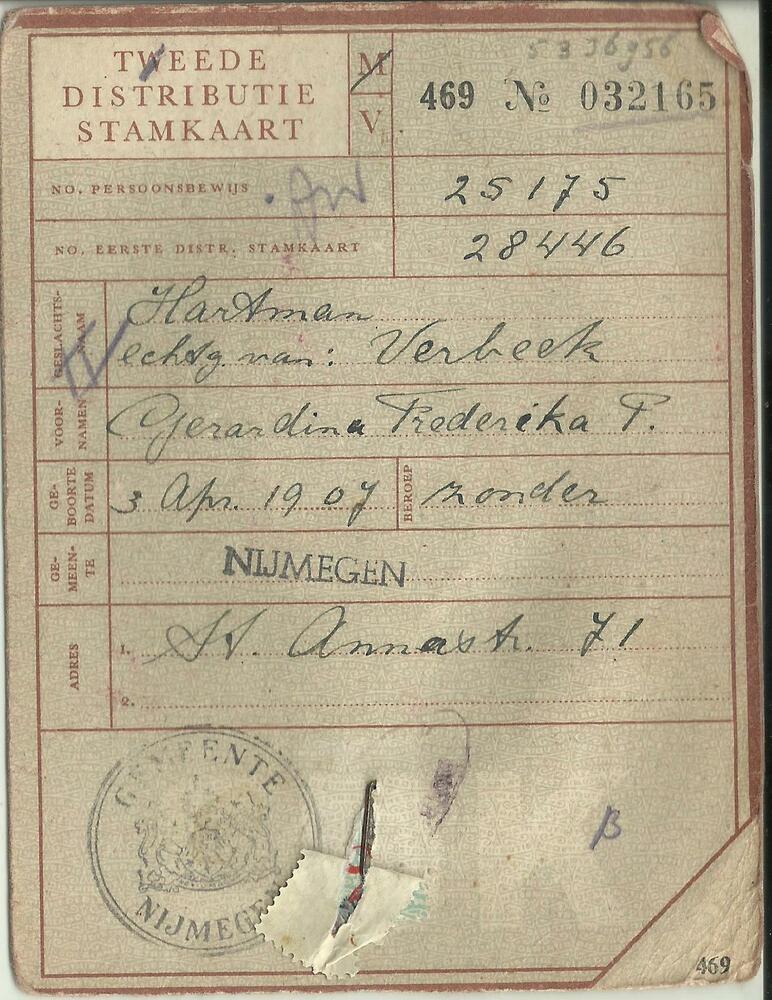 TWEEDE
DISTRIBUTIE
STAMKAART
M
V
5336956
469 No 032165
NO. PERSOONSBEWIJS
25175
NO. EERSTE DISTR. STAMKAART
28446
GESLACHTS-
NAAM
Hartman
echtg van: Verbeek
VOOR-
NAMEN
Gerardina Frederika P.
GE-
BOORTE
DATUM
3 Apr. 1907
BEROEP
zonder
GE-
MEEN-
TE
NIJMEGEN
ADRES
1. St. Annastr. 71
2.
GEMEENTE
NIJMEGEN
B
469